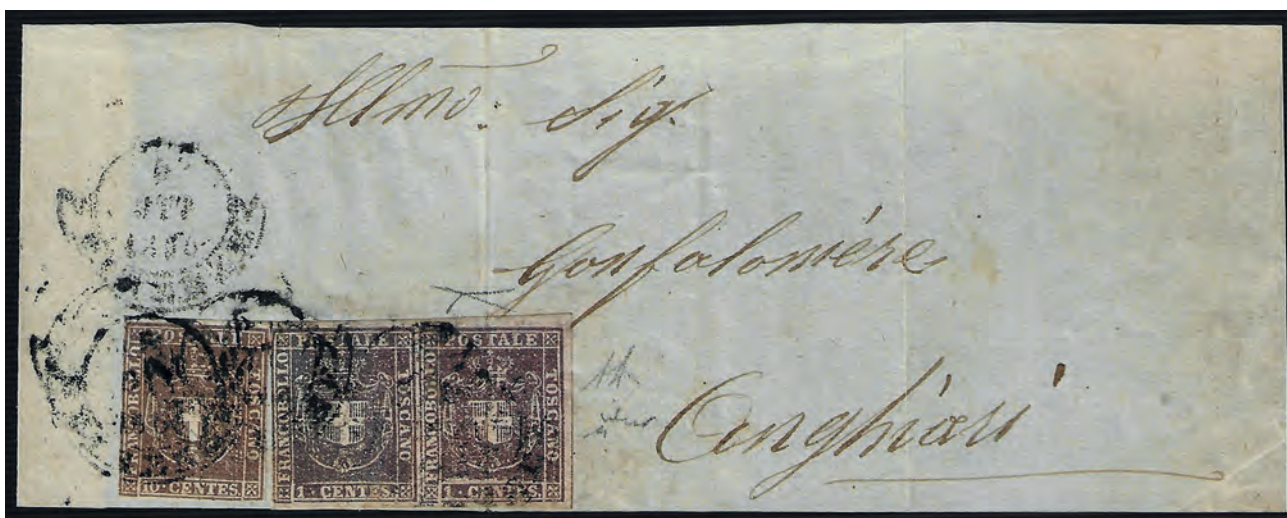 Illmo. Sig.
Gonfaloniere
Anghiari
FRANCOBOLLO POSTALE TOSCANO
10 CENTES.
FRANCOBOLLO POSTALE TOSCANO
1 CENTES.
FRANCOBOLLO POSTALE TOSCANO
1 CENTES.